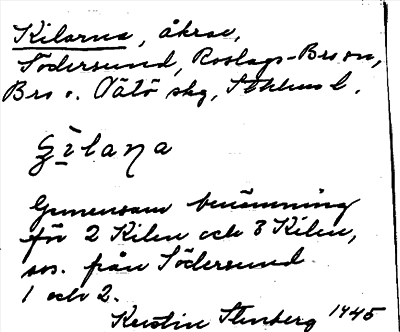 Kilarna, åkrar,
Södersund, Roslags-Bro sn,
Bro o. Vätö skg, Sthlms l.
ʒ̀ìlaɲa
Gemensam benämning
för 2 Kilen och 3 Kilen,
sos. från Södersund
1 och 2.
Kerstin Stenberg 1945